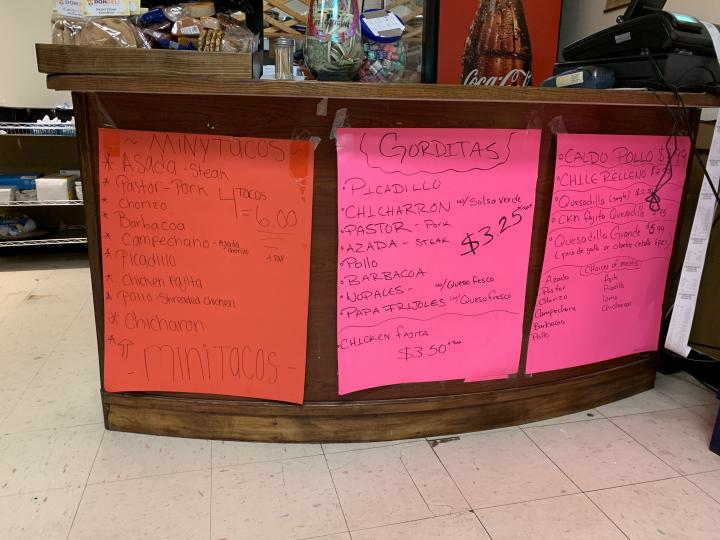 DONDELI
Coca-Cola
~ MINYTACOS
* Asada - Steak
* Pastor - Pork
* Chorizo
* Barbacoa
* Campechano - Asada
Chorizo
* Picadillo
* Chicken Fajita
* Pollo - Shredded Chicken
* Chicharon
4 TACOS
= 6.00
+ TAX
- MINITACOS -
GORDITAS
• PICADILLO
• CHICHARRON w/ Salsa Verde
• PASTOR - Pork
• AZADA - STEAK
$3.25 + tax
• Pollo
• BARBACOA
• NOPALES - w/ Queso fresco
• PAPA FRIJOLES w/ Queso fresco
• CHICKEN FAJITA
$3.50 + tax
• CALDO POLLO
• CHILE RELLENO
• Quesadilla (single)
• CKN fajita Quesadilla
• Quesadilla Grande $6.99
(Choices of meats)
Azada fajita
Pastor Picadillo
Chorizo lomo
Campechana Chicharron
Barbacoa
Pollo